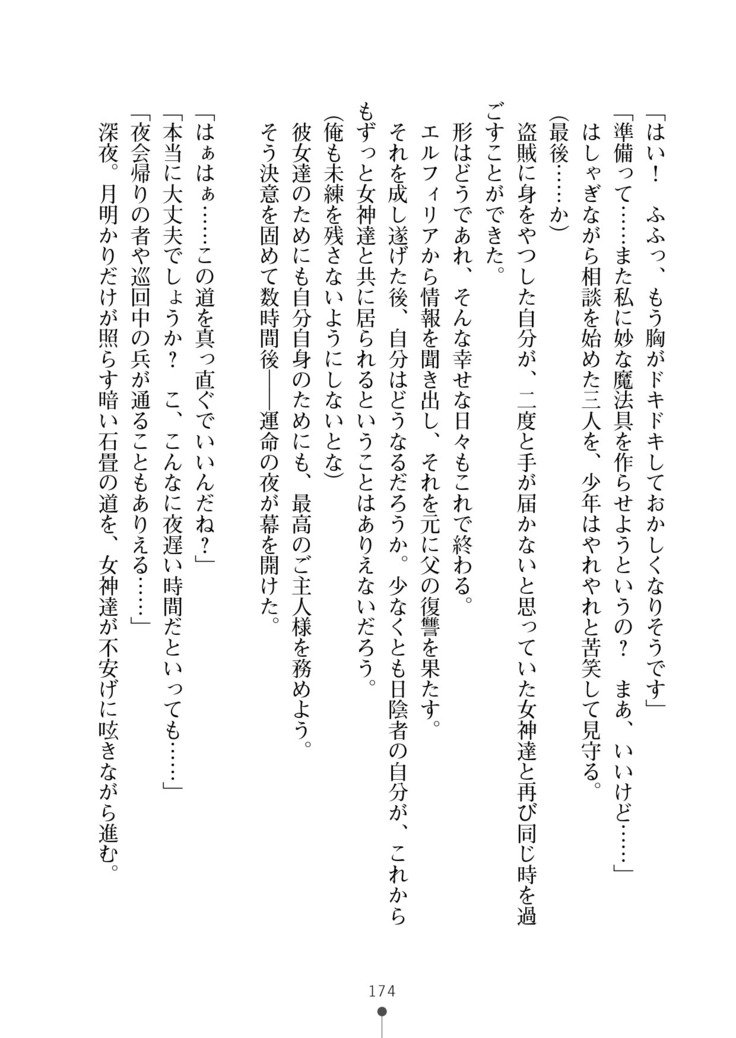 「はい！　ふふっ、もう胸がドキドキしておかしくなりそうです」
「準備って……また私に妙な魔法具を作らせようというの？　まあ、いいけど……」
はしゃぎながら相談を始めた三人を、少年はやれやれと苦笑して見守る。
（最後……か）
盗賊に身をやつした自分が、二度と手が届かないと思っていた女神達と再び同じ時を過
ごすことができた。
形はどうであれ、そんな幸せな日々もこれで終わる。
エルフィリアから情報を聞き出し、それを元に父の復讐を果たす。
それを成し遂げた後、自分はどうなるだろうか。少なくとも日陰者の自分が、これから
もずっと女神達と共に居られるということはありえないだろう。
（俺も未練を残さないようにしないとな）
彼女達のためにも自分自身のためにも、最高のご主人様を務めよう。
そう決意を固めて数時間後――運命の夜が幕を開けた。
「はぁはぁ……この道を真っ直ぐでいいんだね？」
「本当に大丈夫でしょうか？　こ、こんなに夜遅い時間だといっても……」
「夜会帰りの者や巡回中の兵が通ることもありえる……」
深夜。月明かりだけが照らす暗い石畳の道を、女神達が不安げに呟きながら進む。
174